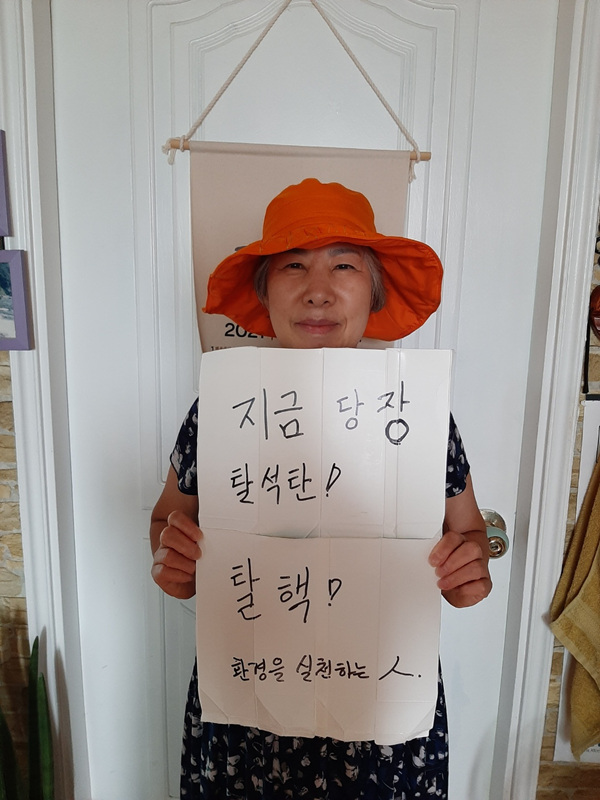 2021
지금 당장
탈석탄!
탈핵!
환경을 실천하는 人.